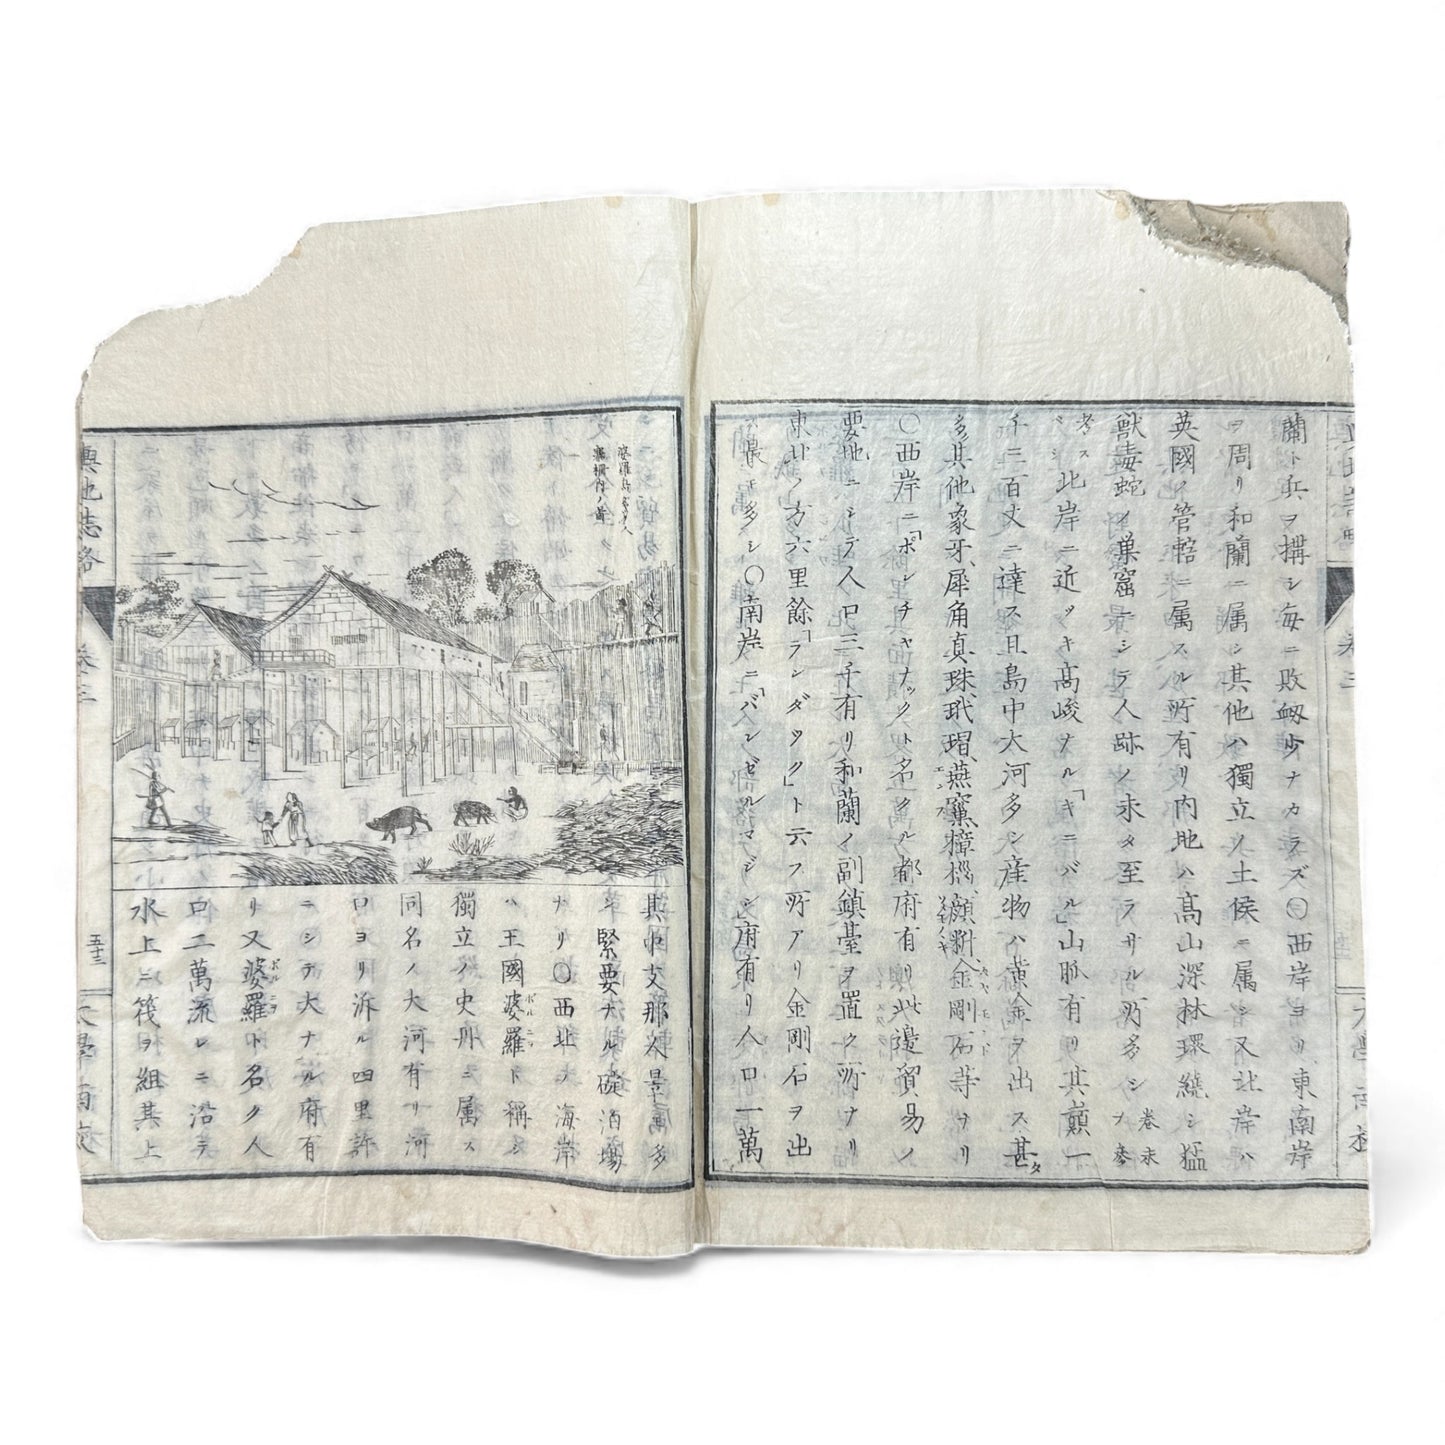 蘭ト兵ヲ搆シ毎ニ敗衂少ナカラズ〇西岸ヨリ東南岸
ヲ周リ和蘭ニ属シ其他ハ獨立ノ土侯ニ属シ又北岸ハ
英國ノ管轄ニ属スル所有リ内地ハ高山深林環繞シ猛
獸毒蛇ノ巣窟ニシテ人跡ノ未タ至ラサル所多シ
巻末ヲ參
考スベシ
北岸ニ近ツキ高峻ナル「キニバル」山脈有リ其巓一
千三百丈ニ達ス且島中大河多シ産物ハ黄金ヲ出ス甚タ
多其他象牙犀角真珠玳瑁燕窠樟樹金剛石等ナリ
〇西岸ニ「ポンチヤナック」ト名クル都府有リ此邊貿易ノ
要地ニシテ人口三千有リ和蘭ノ副鎮臺ヲ置ク所ナリ
東北ノ方六里餘「ランダック」ト云フ所アリ金剛石ヲ出
ス最モ多シ〇南岸ニ「バンゼルマシン」府有リ人口一萬
婆羅島
柵内ノ圖
其中支那人最属多
緊要ナル碇泊場
ナリ〇西北ノ海岸
ハ王國婆羅ト称シ
ボルニヲ
獨立ノ史丹ニ属ス
同名ノ大河有リ河
口ヨリ泝ル四里許
ニシテ大ナル府有
リ又婆羅ト名ク人
ボルニヲ
口二萬流レニ沿テ
水上ニ筏ヲ組其上
輿地志略
巻三
五十三
大學南校